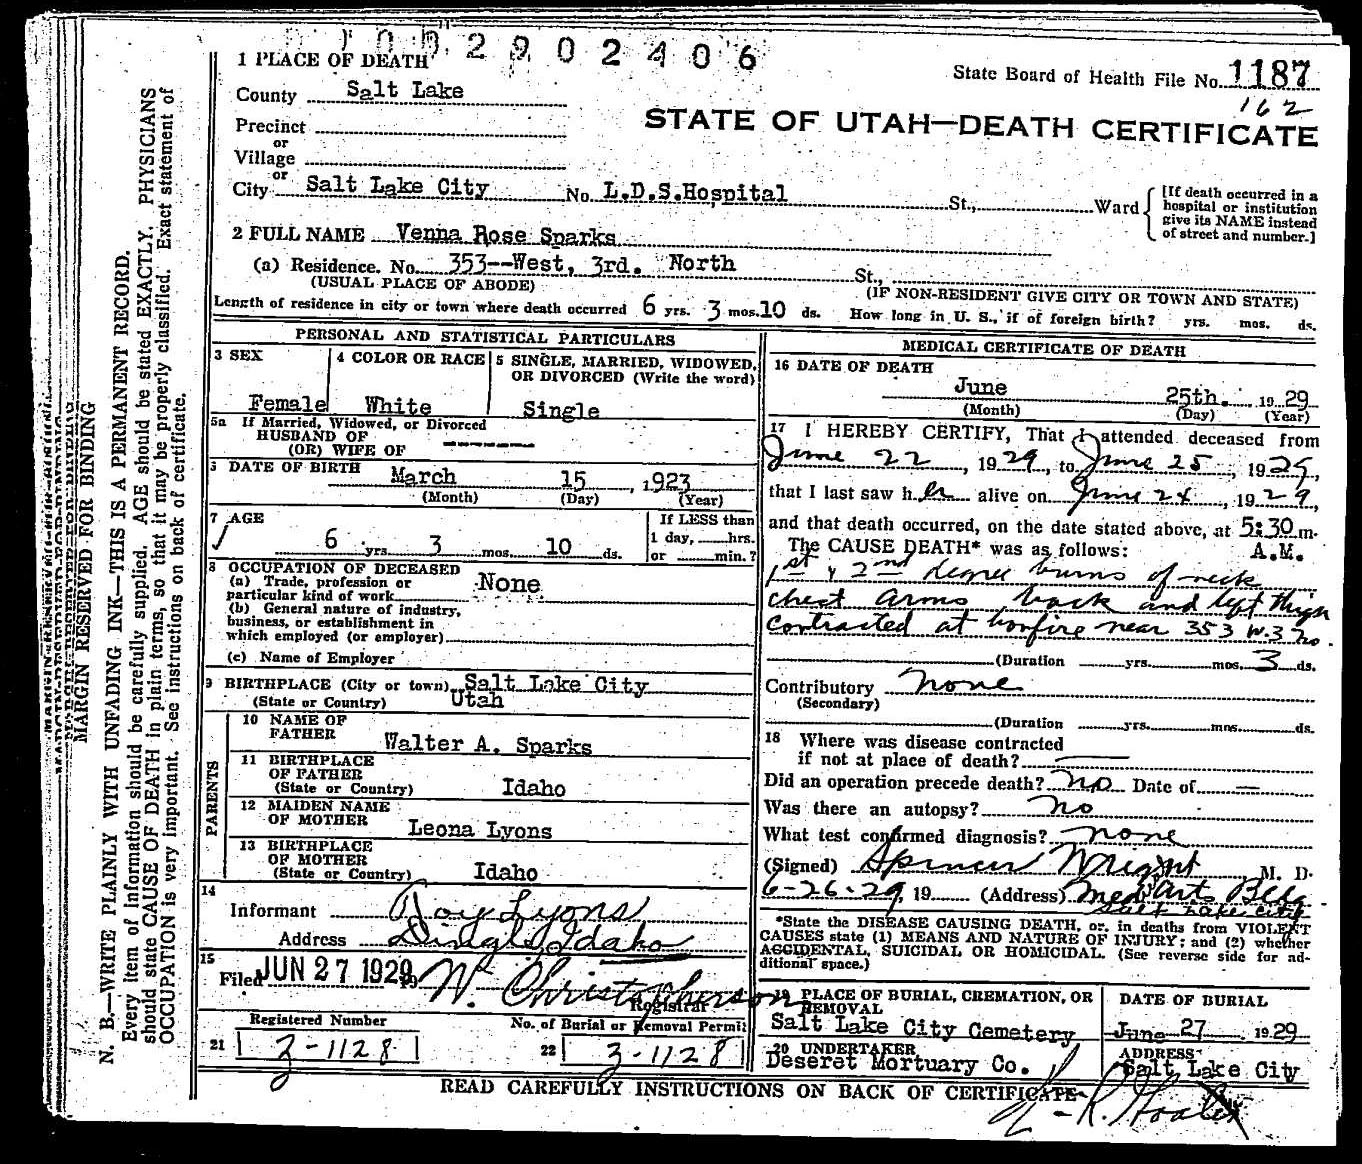 1002902406
1 PLACE OF DEATH
State Board of Health File No. 1187
162
County Salt Lake
STATE OF UTAH—DEATH CERTIFICATE
Precinct
or
Village
or
City Salt Lake City No. L.D.S.Hospital St., Ward
[If death occurred in a
hospital or institution
give its NAME instead
of street and number.]
2 FULL NAME Venna Rose Sparks
(a) Residence. No. 353--West, 3rd. North St.,
(USUAL PLACE OF ABODE) (IF NON-RESIDENT GIVE CITY OR TOWN AND STATE)
Length of residence in city or town where death occurred 6 yrs. 3 mos. 10 ds. How long in U. S., if of foreign birth? yrs. mos. ds.
PERSONAL AND STATISTICAL PARTICULARS
3 SEX
Female
4 COLOR OR RACE
White
5 SINGLE, MARRIED, WIDOWED,
OR DIVORCED (Write the word)
Single
5a If Married, Widowed, or Divorced
HUSBAND OF
(OR) WIFE OF
6 DATE OF BIRTH March 15, 1923
(Month) (Day) (Year)
7 AGE
6 yrs. 3 mos. 10 ds.
If LESS than
1 day, hrs.
or min.?
8 OCCUPATION OF DECEASED
(a) Trade, profession or
particular kind of work None
(b) General nature of industry,
business, or establishment in
which employed (or employer)
(c) Name of Employer
9 BIRTHPLACE (City or town) Salt Lake City
(State or Country) Utah
PARENTS
10 NAME OF
FATHER Walter A. Sparks
11 BIRTHPLACE
OF FATHER
(State or Country) Idaho
12 MAIDEN NAME
OF MOTHER Leona Lyons
13 BIRTHPLACE
OF MOTHER
(State or Country) Idaho
14
Informant Roy Lyons
Address Dingle, Idaho
15
Filed JUN 27 1929 19 W. Christopherson
Registrar
Registered Number
21 3-1128
No. of Burial or Removal Permit
22 3-1128
MEDICAL CERTIFICATE OF DEATH
16 DATE OF DEATH
June 25th. 1929
(Month) (Day) (Year)
17 I HEREBY CERTIFY, That I attended deceased from
June 22, 1929, to June 25, 1929,
that I last saw her alive on June 24, 1929,
and that death occurred, on the date stated above, at 5:30 m.
A.M.
The CAUSE DEATH* was as follows:
1st & 2nd degree burns of neck
chest arms back and left thigh
contracted at bonfire near 353 W. 3 No.
(Duration yrs. mos. 3 ds.
Contributory None
(Secondary)
(Duration yrs. mos. ds.
18 Where was disease contracted
if not at place of death?
Did an operation precede death? No Date of —
Was there an autopsy? No
What test confirmed diagnosis? none
(Signed) Spencer Wright M. D.
6-26-29, 19 (Address) Med Arts Bldg
Salt Lake City
*State the DISEASE CAUSING DEATH, or, in deaths from VIOLENT
CAUSES state (1) MEANS AND NATURE OF INJURY; and (2) whether
ACCIDENTAL, SUICIDAL OR HOMICIDAL. (See reverse side for ad-
ditional space.)
19 PLACE OF BURIAL, CREMATION, OR
REMOVAL
Salt Lake City Cemetery
DATE OF BURIAL
June 27 1929
20 UNDERTAKER
Deseret Mortuary Co.
ADDRESS
Salt Lake City
READ CAREFULLY INSTRUCTIONS ON BACK OF CERTIFICATE
MARGIN RESERVED FOR BINDING
N. B.—WRITE PLAINLY WITH UNFADING INK—THIS IS A PERMANENT RECORD.
Every item of information should be carefully supplied. AGE should be stated EXACTLY. PHYSICIANS
should state CAUSE OF DEATH in plain terms, so that it may be properly classified. Exact statement of
OCCUPATION is very important. See instructions on back of certificate.